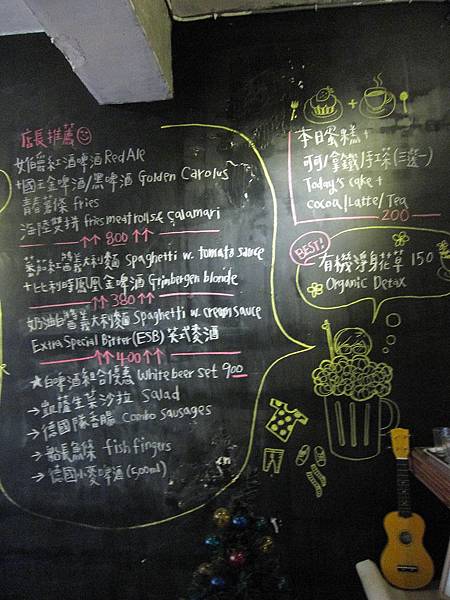 店長推薦
紅酒啤酒 Red Ale
+國王金啤酒/黑啤酒 Golden Carolus
青春薯條 fries
海陸雙拼 fries meatrolls & calamari
↑↑ 800 ↑↑
蕃茄紅醬義大利麵 Spaghetti w. tomato sauce
+比利時鳳凰金啤酒 Grimbergen blonde
↑↑ 380 ↑↑
奶油白醬義大利麵 Spaghetti w. cream sauce
Extra Special Bitter (ESB) 英式麥酒
↑↑ 400 ↑↑
★白啤酒組合優惠 white beer set 900
→ 生菜沙拉 Salad
→ 德國豚香腸 combo sausages
→ 船長魚條 fish fingers
→ 德國小麥啤酒 (500ml)
本日蛋糕+
可可/拿鐵/手工茶(三選一)
Today's cake+
cocoa/Latte/Tea
200
BEST!
有機淨身花草 150
Organic Detox